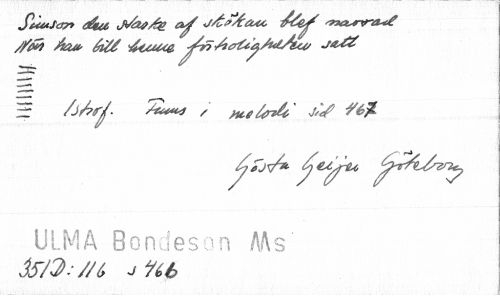 Simson den starke af skökan blef narrad
När han till henne förtroligheten satt
1 strof. Finns i melodi sid 467
Gösta Geijer Göteborg
ULMA Bondeson Ms
351D:116 s 466